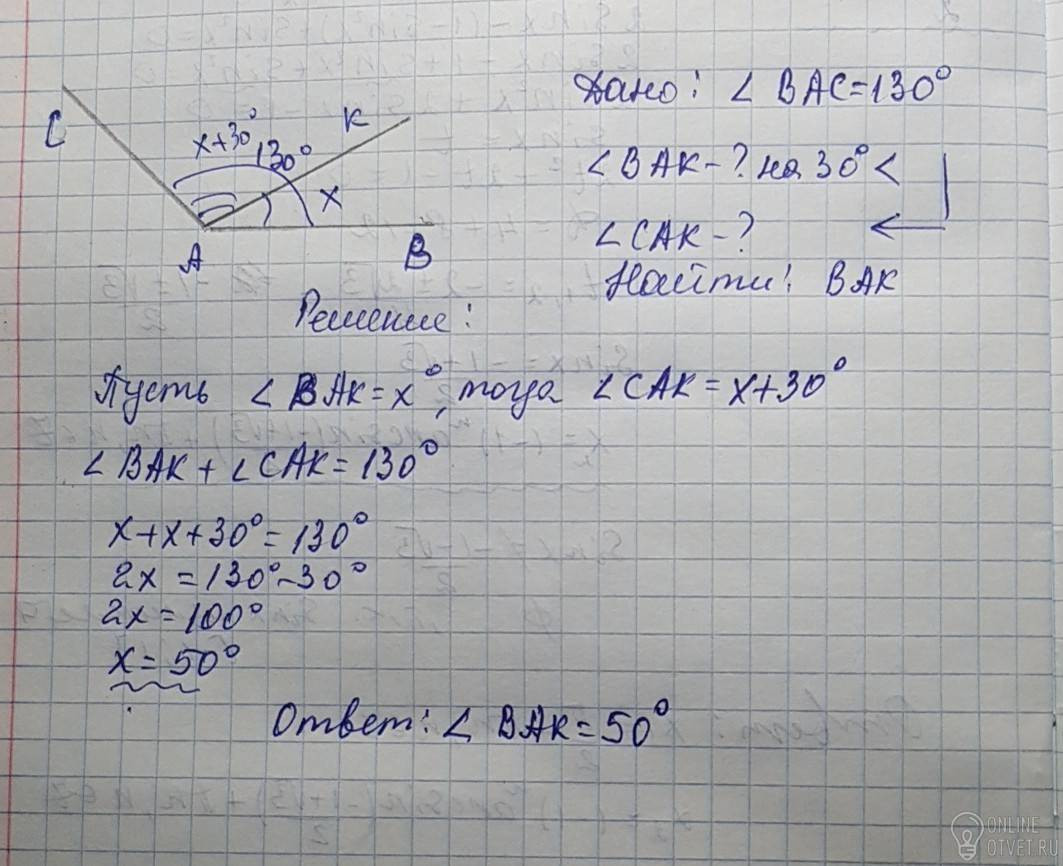 C
x+30°
130°
K
x
A
B
Дано: ∠ BAC=130°
∠BAK-? на 30° <
∠CAK-?
Найти: BAK
Решение:
Пусть ∠ BAK=x°, тогда ∠CAK=x+30°
∠BAK+∠CAK=130°
x+x+30°=130°
2x=130°-30°
2x=100°
x=50°
Ответ: ∠ BAK=50°
ONLINE
OTVET.RU